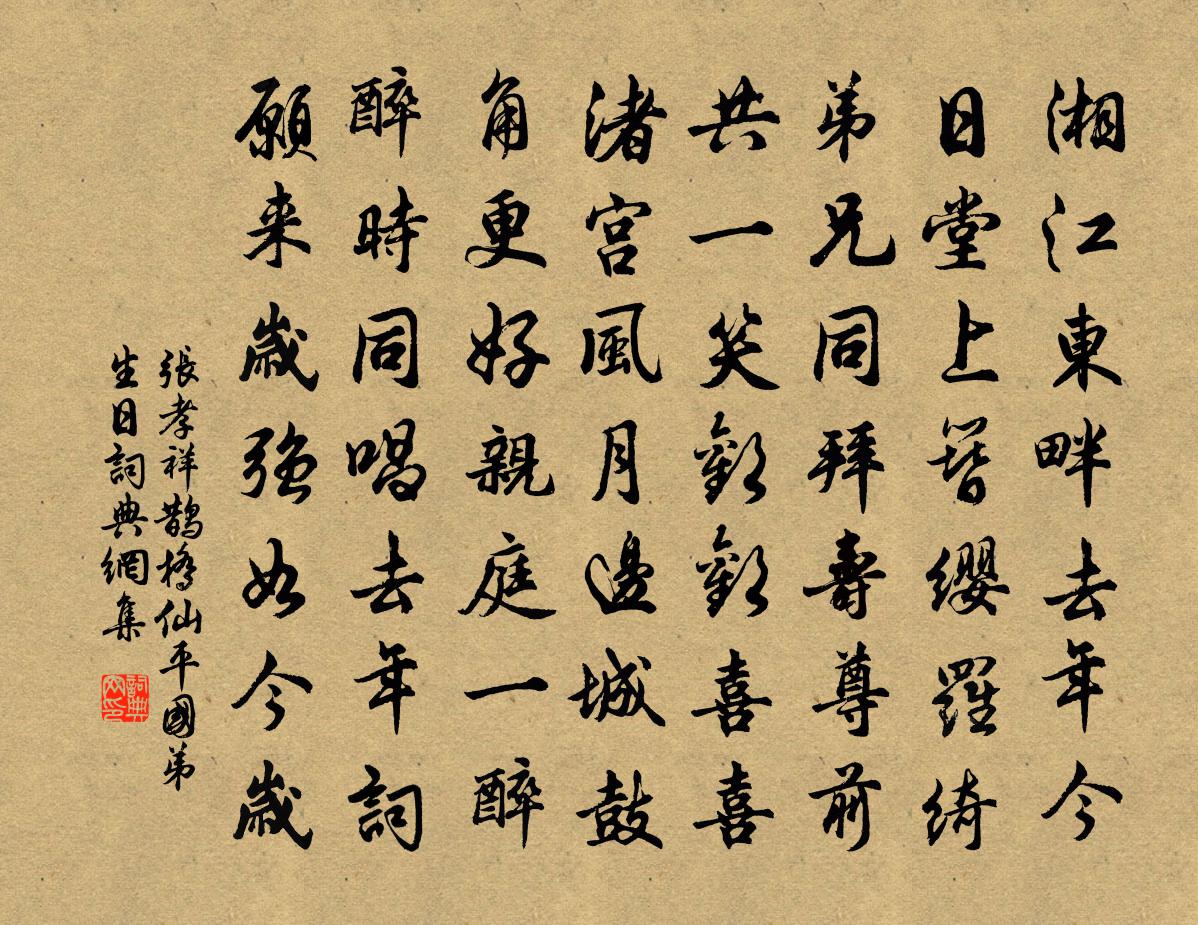 湘江東畔去年今
日堂上簪纓羅綺
弟兄同拜壽尊前
共一笑歡歡喜喜
渚宮風月邊城鼓
角更好親庭一醉
醉時同唱去年詞
願来歲強如今歲
張孝祥鵲橋仙平國弟
生日詞典網集
詞典網印